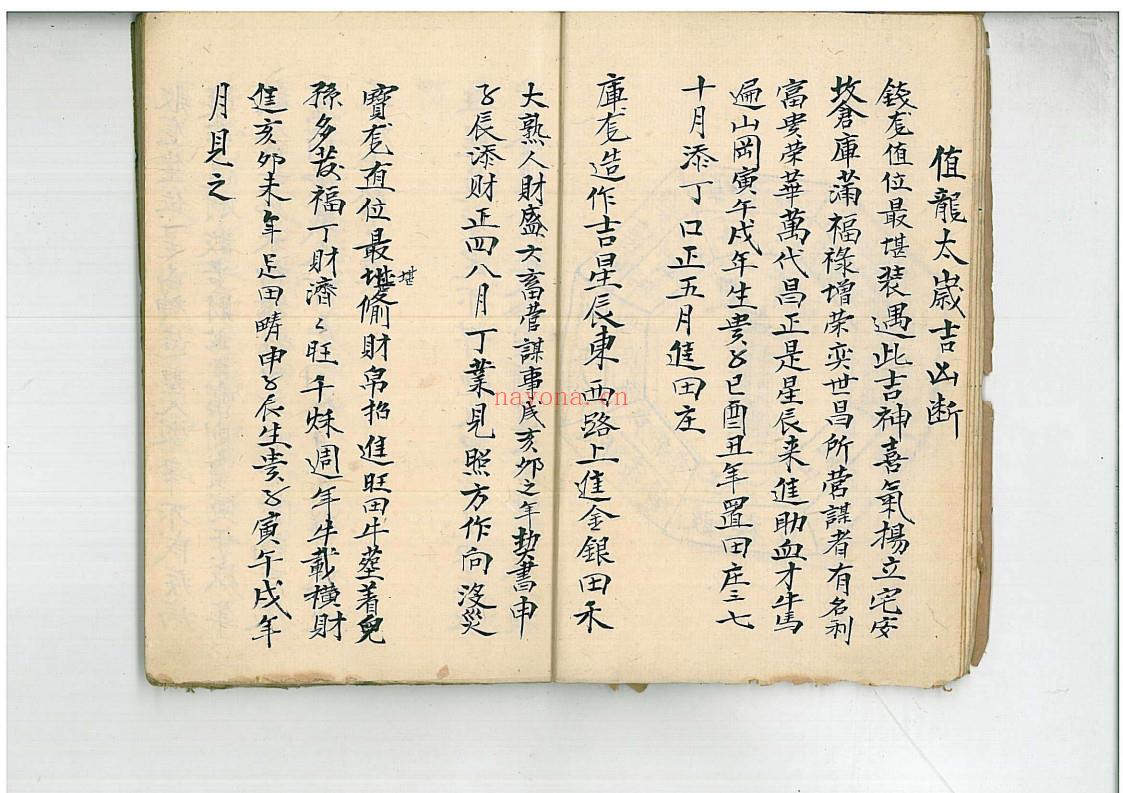 值龍太歲吉凶断
錢龙值位最堪装遇此吉神喜氣揚立宅安
坟倉庫蒲福祿增荣奕世昌所营謀者有名利
富贵荣華萬代昌正是星辰来進助血才牛馬
遍山岡寅午戌年生贵子巳酉丑年置田庄三七
十月添丁口正五月進田庄
庫龙造作吉星辰東西路上進金銀田禾
大熟人財盛六畜营謀事成亥卯之年契書申
子辰添财正四八月丁業見照方作向没災
寶龙直位最堪偷财帛招進旺田牛塟着兒
堪
孫多發福丁财濟々旺千秌週年半載横财
進亥卯未年足田疇申子辰生贵子寅午戌年
月見之
nayona.cn